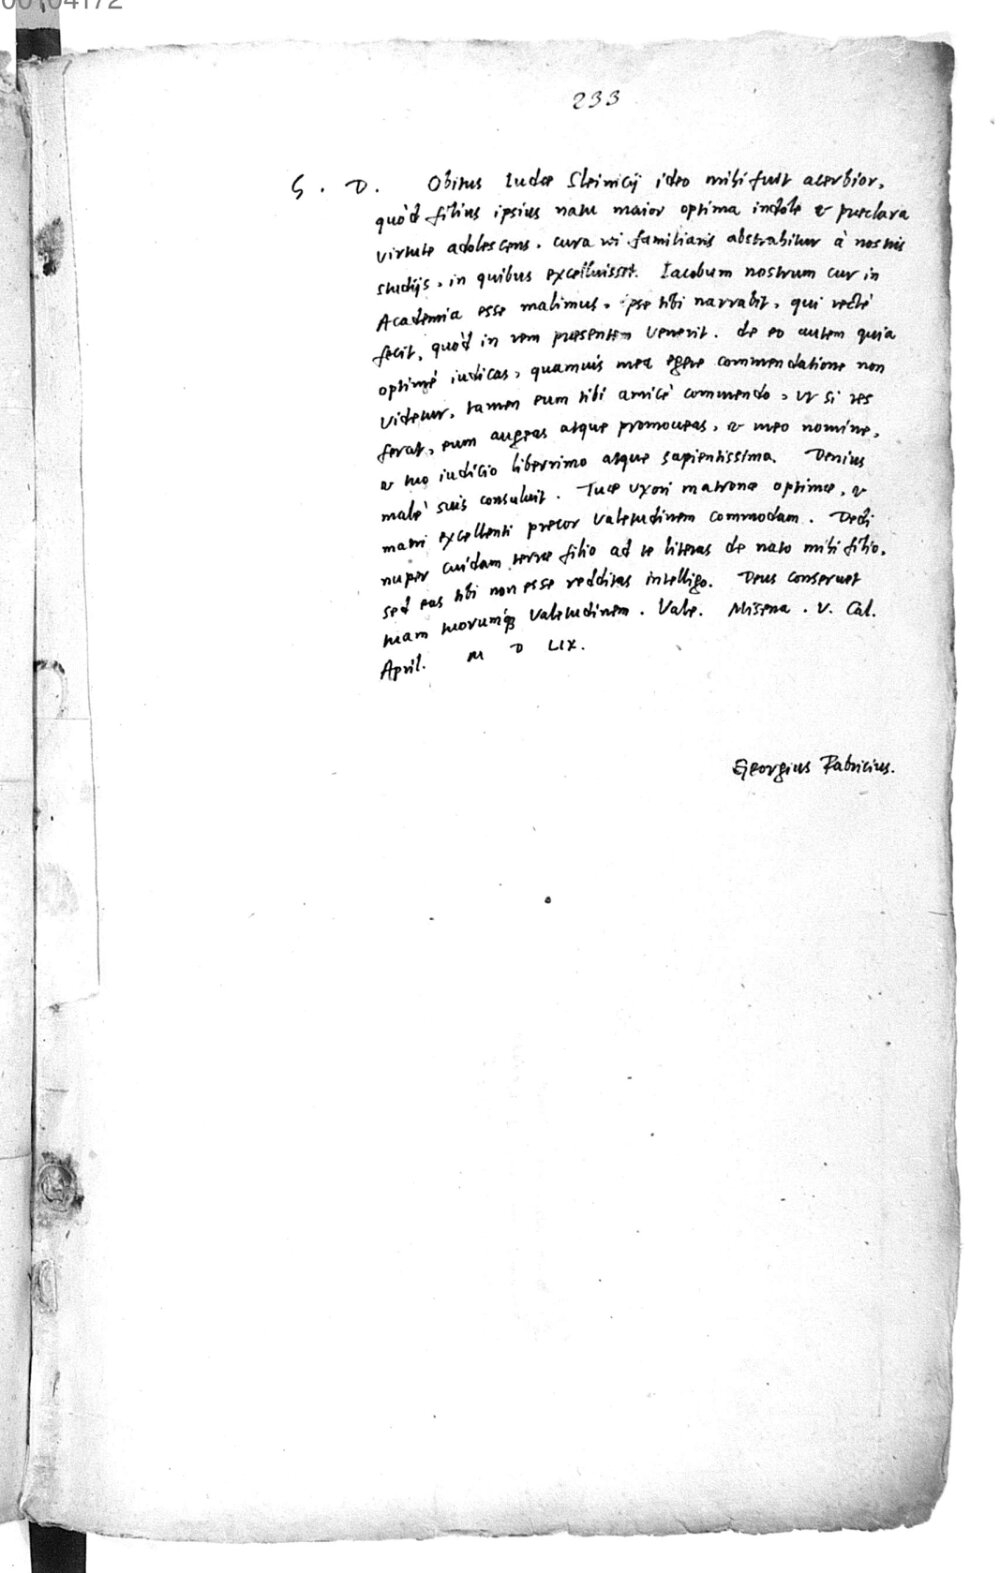 233
S. D. Obitus Iudae Sleinicij ideo mihi fuit acerbior,
quòd filius ipsius natu maior optima indole & praeclara
virtute adolescens, cura rei familiaris abstrahitur à nostris
studijs, in quibus excelluisset. Iacobum nostrum cur in
Academia esse malimus, ipse tibi narrabit, qui rectè
fecit, quòd in rem praesentem venerit. de eo autem quia
optimè iudicas, quamuis mea egere commendatione non
videtur, tamen eum tibi amicè commendo, vt si res
ferat, eum augeas atque promoueas, & meo nomine,
& tuo iudicio liberrimo atque sapientissimo. Denius
malè suis consuluit. Tuae vxori matronae optimae, &
matri excellenti precor valetudinem commodam. Dedi
nuper cuidam terrae filio ad te literas de nato mihi filio,
sed eas tibi non esse redditas intelligo. Deus conseruet
tuam tuorumq́; valetudinem. Vale. Misena. V. Cal.
April. M D LIX.
Georgius Fabricius.